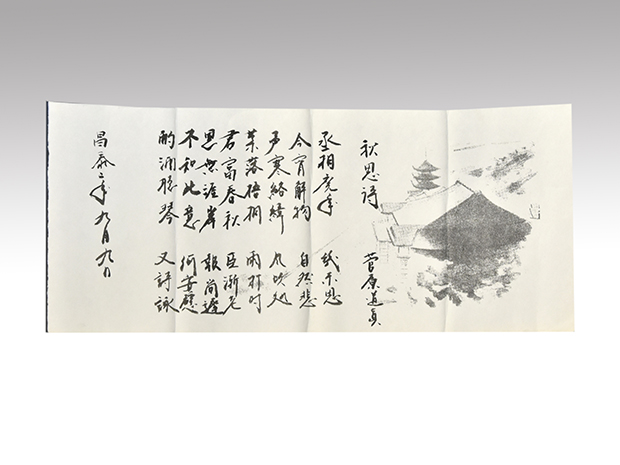 秋思詩 菅原道真
丞相度年 幾楽思
今宵触物 自然悲
声寒絡緯 風吹処
葉落梧桐 雨打時
君富春秋 臣漸老
恩無涯岸 報尚遅
不知此意 何安慰
酌酒聴琴 又詩詠
昌泰二年九月九日